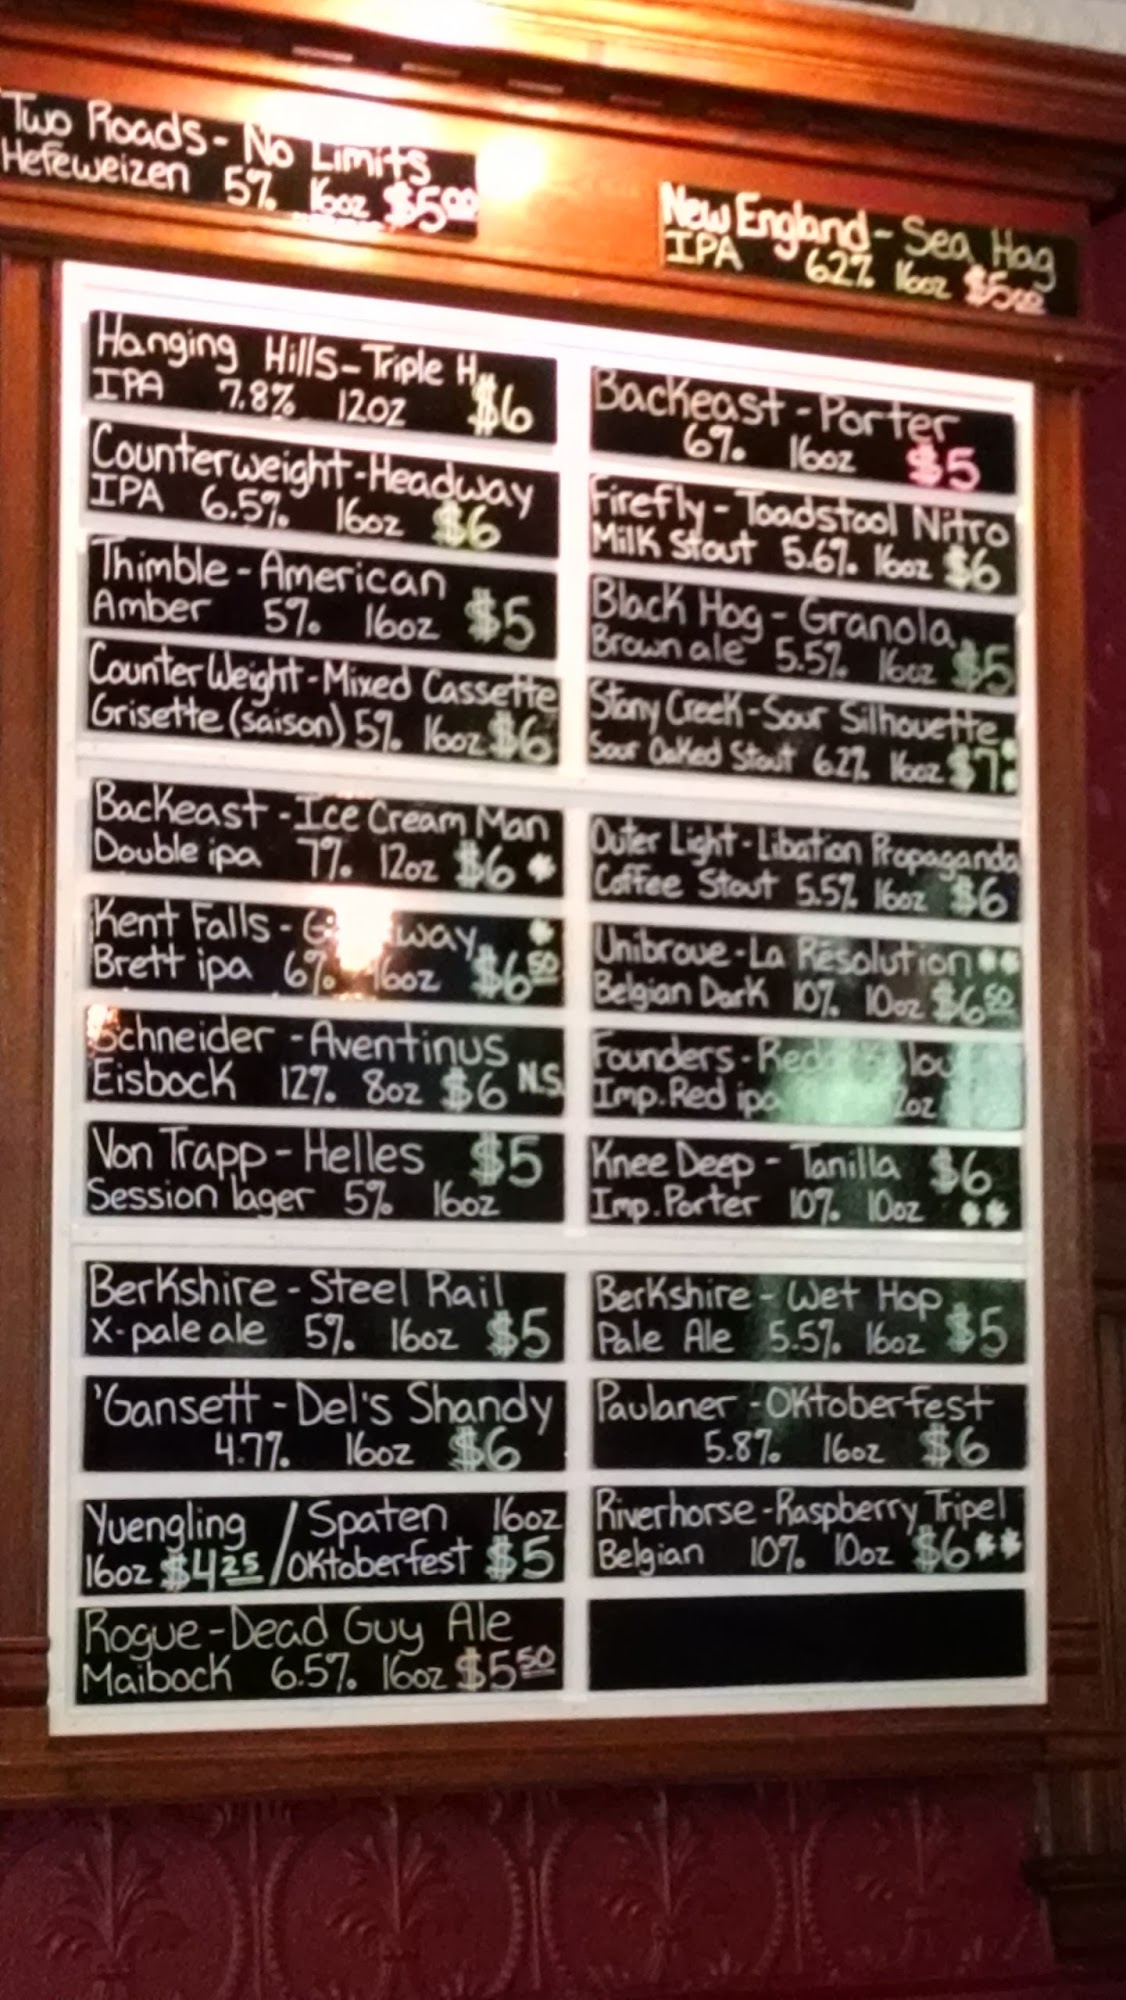 Two Roads - No Limits
Hefeweizen 5% 16oz $5.00
New England - Sea Hag
IPA 6.2% 16oz $5.00
Hanging Hills - Triple H
IPA 7.8% 12oz $6
Counterweight - Headway
IPA 6.5% 16oz $6
Thimble - American
Amber 5% 16oz $5
Counter Weight - Mixed Cassette
Grisette (saison) 5% 16oz $6
Backeast - Ice Cream Man
Double ipa 7% 12oz $6 *
Kent Falls - *
Brett ipa 6% 16oz $6.50
Schneider - Aventinus
Eisbock 12% 8oz $6 N.S.
Von Trapp - Helles $5
Session lager 5% 16oz
Berkshire - Steel Rail
X-pale ale 5% 16oz $5
'Gansett - Del's Shandy
4.7% 16oz $6
Yuengling / Spaten 16oz
16oz $4.25 / Oktoberfest $5
Rogue - Dead Guy Ale
Maibock 6.5% 16oz $5.50
Backeast - Porter
6% 16oz $5
Firefly - Toadstool Nitro
Milk Stout 5.6% 16oz $6
Black Hog - Granola
Brown ale 5.5% 16oz $5
Stony Creek - Sour Silhouette
Sour Oaked Stout 6.2% 16oz $7
Outer Light - Libation Propaganda
Coffee Stout 5.5% 16oz $6
Unibroue - La Résolution **
Belgian Dark 10% 10oz $6.50
Founders -
Imp. Red ipa
Knee Deep - Tanilla $6
Imp. Porter 10% 10oz **
Berkshire - Wet Hop
Pale Ale 5.5% 16oz $5
Paulaner - Oktoberfest
5.8% 16oz $6
Riverhorse - Raspberry Tripel
Belgian 10% 10oz $6 **